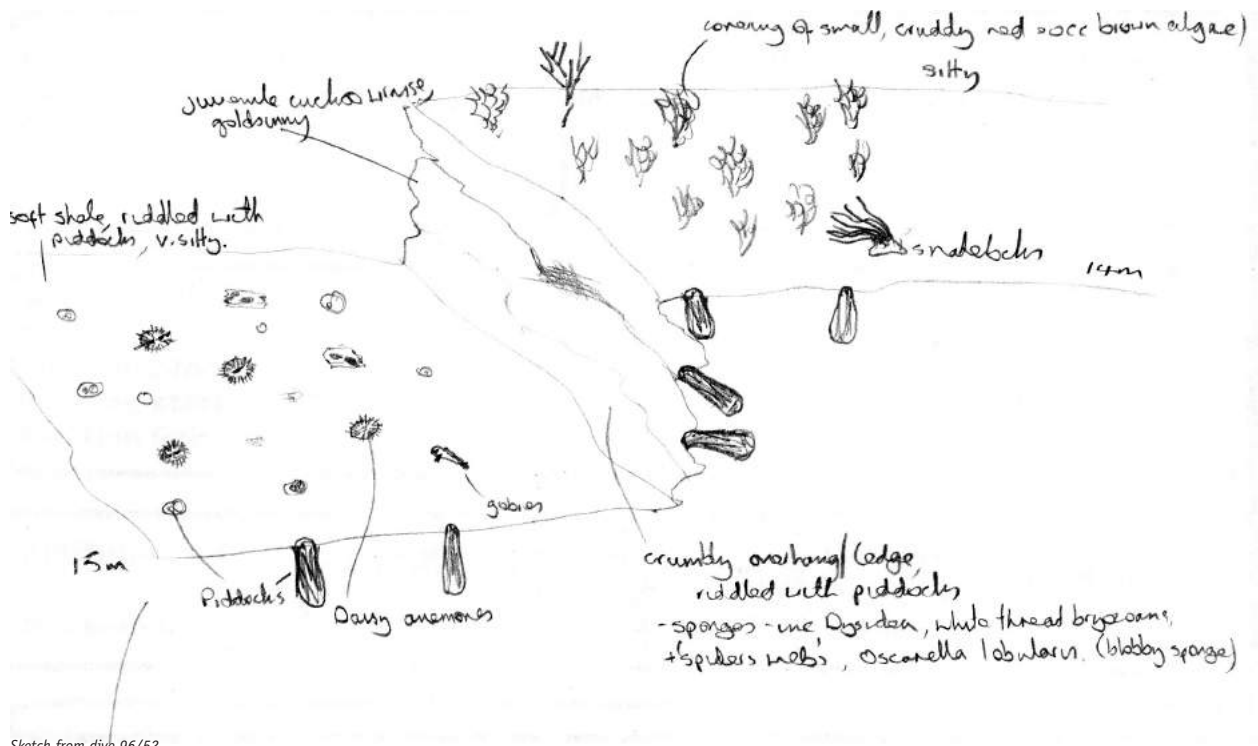 covering of small, cruddy red + occ brown algae)
silty
juvenile cuckoo wrasse,
goldsinny
soft shale, riddled with
piddocks, v. silty.
snakelocks
14m
gobies
15m
Piddocks
Daisy anemones
crumbly overhang/ledge,
riddled with piddocks
- sponges - inc Dysidea, white thread bryozoans,
+ 'spiders webs', Oscarella lobularis. (blobby sponge)
Sketch from dive 96/53